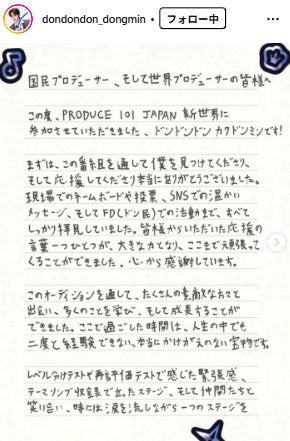 dondondon_dongmin
フォロー中
国民プロデューサー、そして世界プロデューサーの皆様へ
この度、PRODUCE 101 JAPAN 新世界に
参加させていただきました、ドンドンドン カクドンミンです!
まずは、この番組を通して僕を見つけてくださり、
そして応援してくださり本当にありがとうございました。
現場でのチームボードや投票、SNSでの温かい
メッセージ、そしてFD(ドン民)での活動まで、すべて
しっかり拝見していました。皆様からいただいた応援の
言葉一つひとつが、大きな力となり、ここまで頑張って
くることができました。心から感謝しています。
このオーディションを通して、たくさんの素敵な方々と
出会い、多くのことを学び、そして成長することが
できました。ここで過ごした時間は、人生の中でも
二度と経験できない、本当にかけがえのない宝物です。
レベル分けテストや再評価テストで感じた緊張感、
テーマソング収録で立ったステージ、そして仲間たちと
笑い合い、時には涙を流しながら一つのステージを